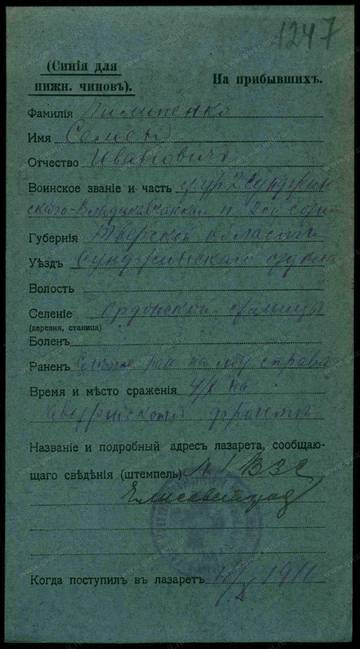 1247
(Синія для
нижн. чиновъ).
На прибывшихъ.
Фамилія Пилипенко
Имя Семенъ
Отчество Ивановичъ
Воинское званіе и часть
ского-Владикавказскаго п. 2ой сотни
Губернія Терской области
Уѣздъ Сунженскаго отдѣла
Волость
Селеніе Ардонской станицы
(деревня, станица)
Боленъ
Раненъ
Время и мѣсто сраженія 4/X на
Австрійскомъ фронтѣ
Названіе и подробный адресъ лазарета, сообщаю-
щаго свѣдѣнія (штемпель) № 1 ВЗС
Елисаветград
Когда поступилъ въ лазаретъ